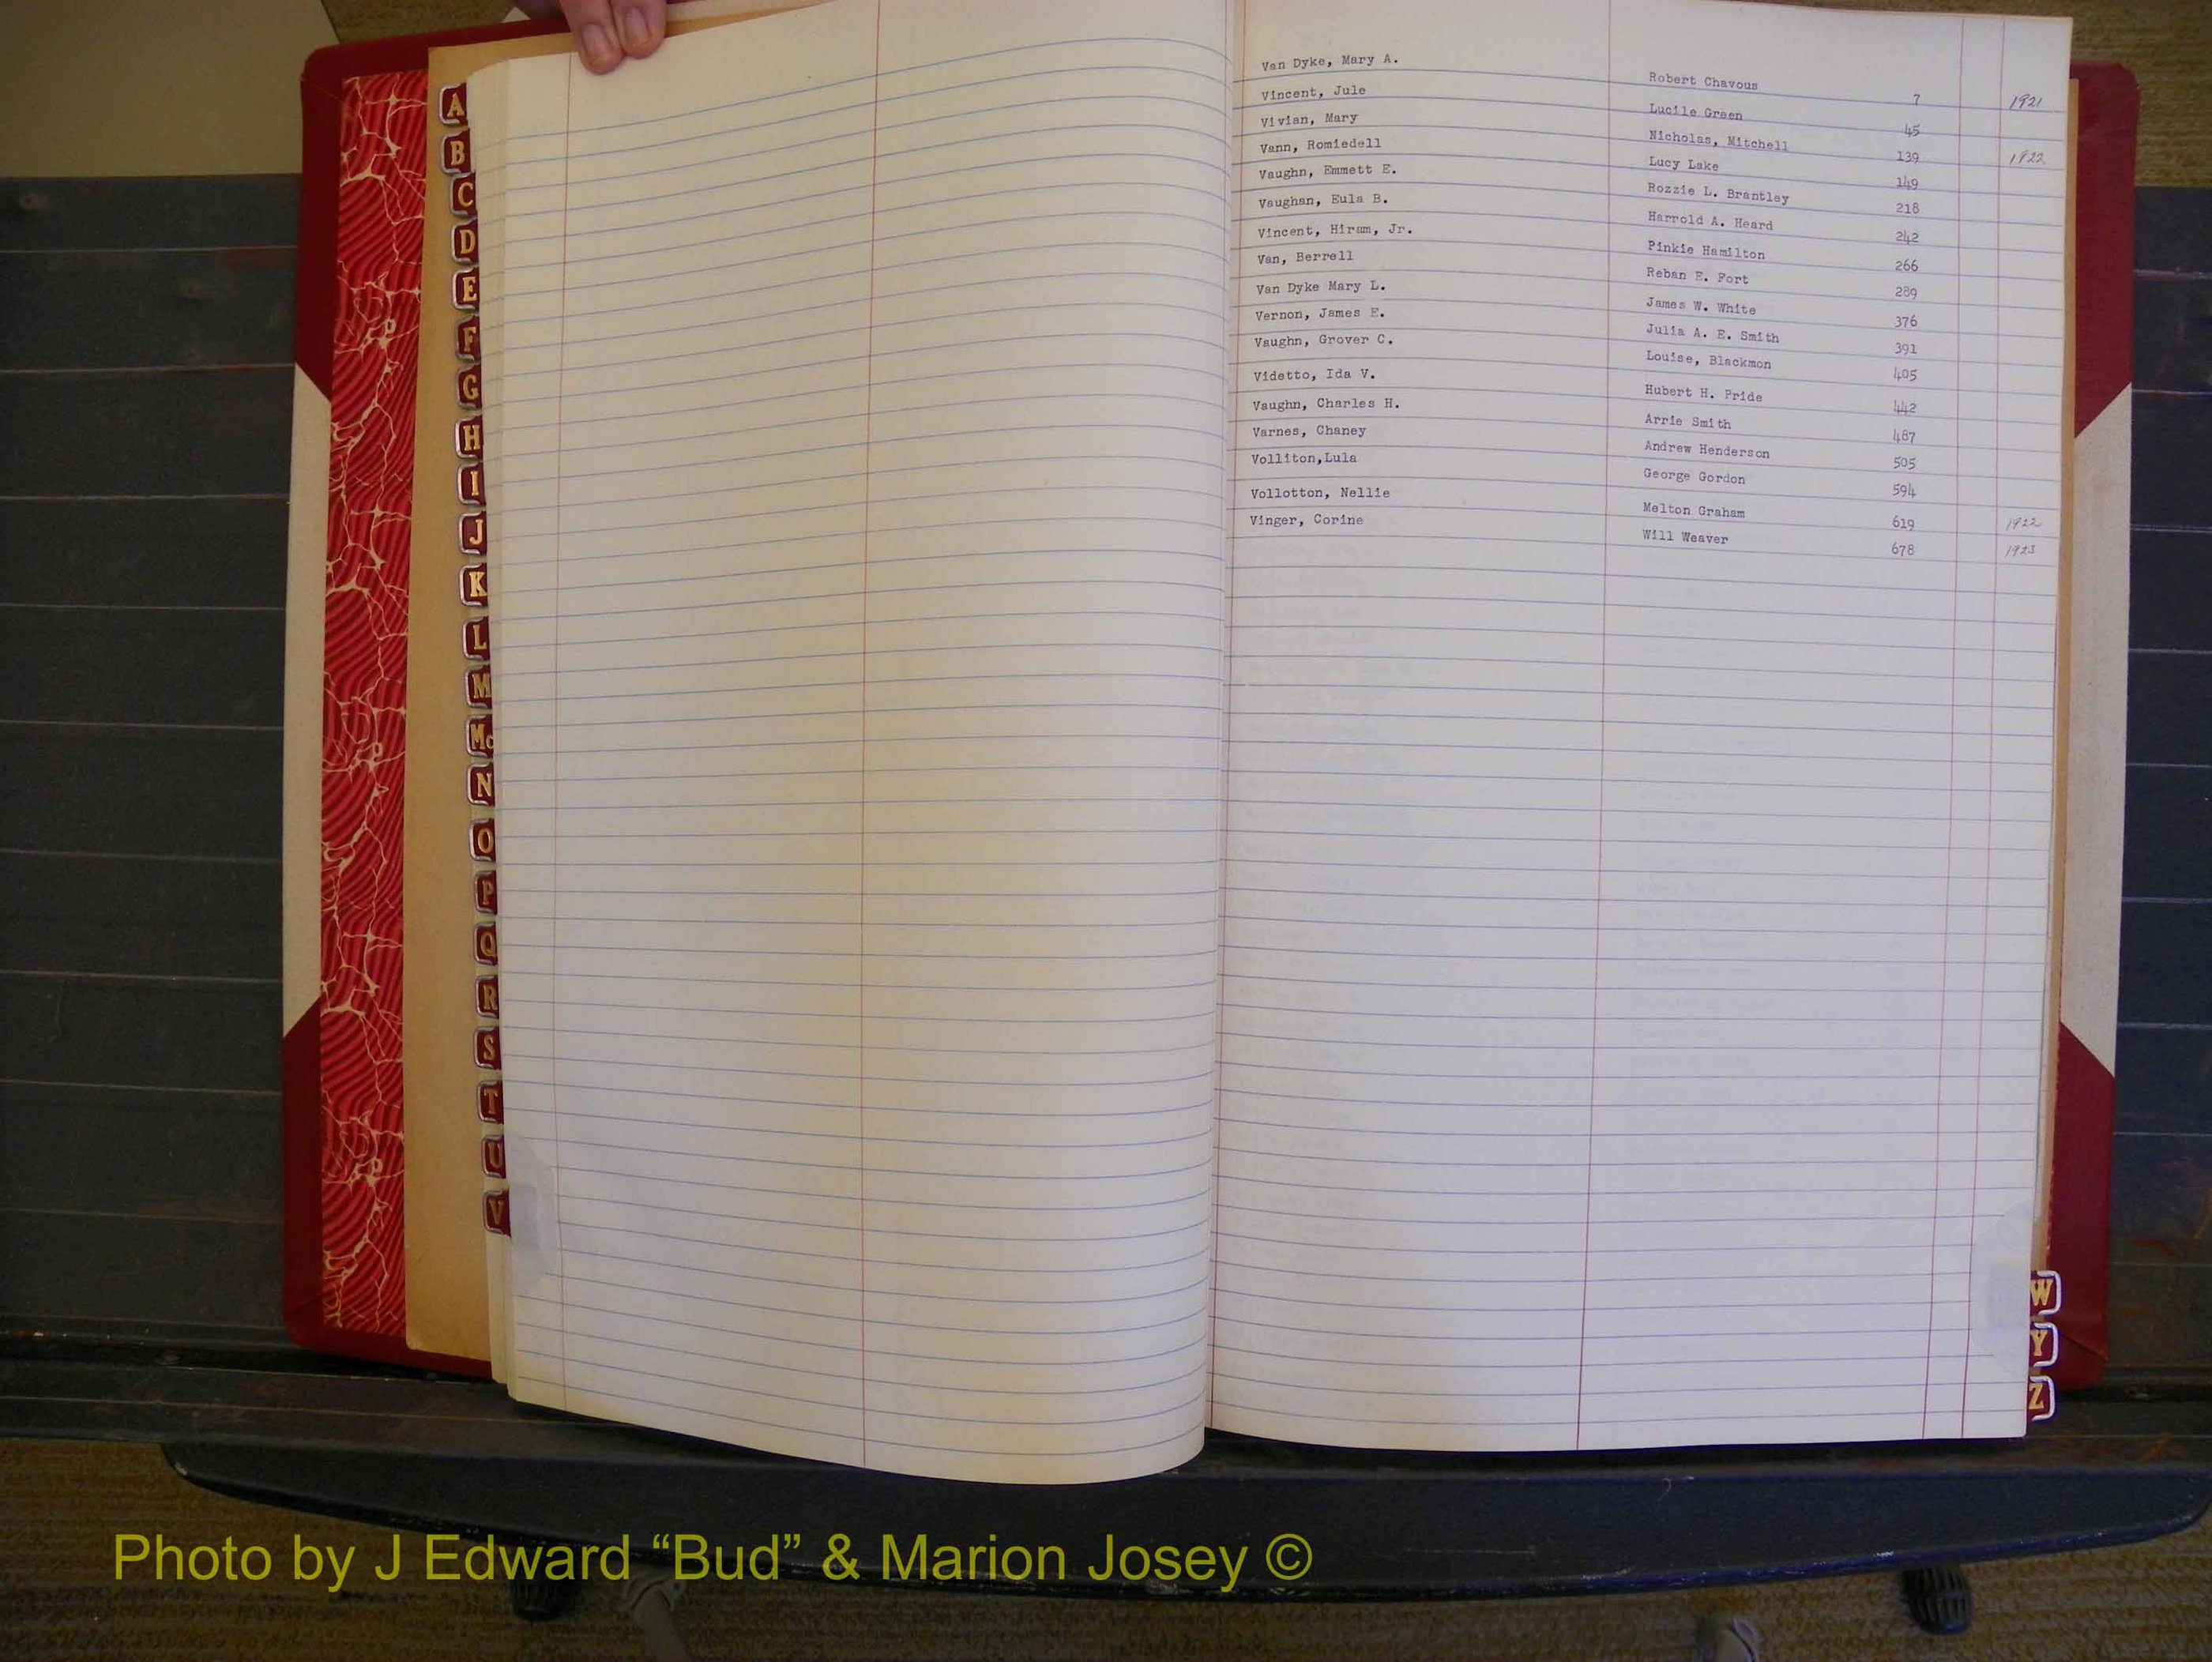 A
B
C
D
E
F
G
H
I
J
K
L
M
Mc
N
O
P
Q
R
S
T
U
V
Van Dyke, Mary A. Robert Chavous 7 1921
Vincent, Jule Lucile Green 45
Vivian, Mary Nicholas, Mitchell 139 1922
Vann, Romiedell Lucy Lake 149
Vaughn, Emmett E. Rozzie L. Brantley 218
Vaughan, Eula B. Harrold A. Heard 242
Vincent, Hiram, Jr. Pinkie Hamilton 266
Van, Berrell Reban E. Fort 289
Van Dyke Mary L. James W. White 376
Vernon, James E. Julia A. E. Smith 391
Vaughn, Grover C. Louise, Blackmon 405
Videtto, Ida V. Hubert H. Pride 442
Vaughn, Charles H. Arrie Smith 487
Varnes, Chaney Andrew Henderson 505
Volliton,Lula George Gordon 594
Vollotton, Nellie Melton Graham 619 1922
Vinger, Corine Will Weaver 678 1923
W
Y
Z
Photo by J Edward “Bud” & Marion Josey ©